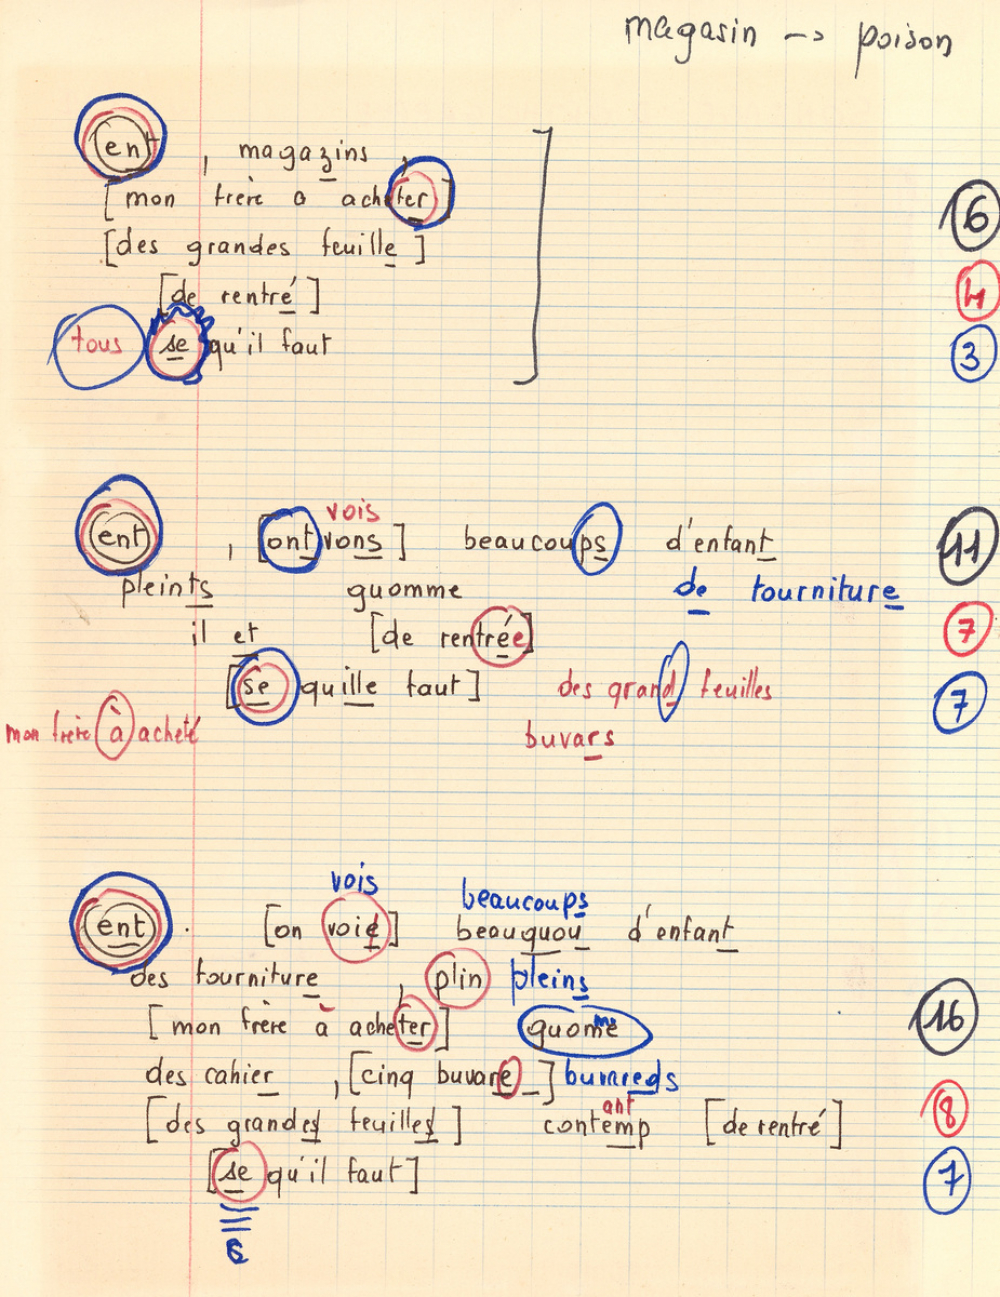 magasin -> poison
ent , magazins ,
[mon frère a acheter] 16
[des grandes feuille]
[de rentré] 4
tous se qu'il faut 3
vois
ent , [ont vons] beaucoups d'enfant 11
pleints quomme de fourniture
il et [de rentrée] 7
[se quille faut] des grand feuilles 7
mon frère à acheté buvars
vois beaucoups
ent . [on voit] beauquou d'enfant
des fourniture , plin pleins
[mon frère à acheter] quomme 16
des cahier , [cinq buvare_] buvareds
ant
[des grandes feuilles] contemp [de rentré] 8
[se qu'il faut] 7